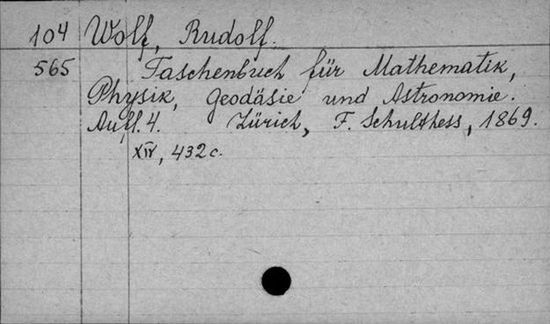 104 Wolf, Rudolf.
565 Taschenbuch für Mathematik,
Physik, Geodäsie und Astronomie.
Aufl. 4. Zürich, F. Schulthess, 1869.
XIV, 432 c.